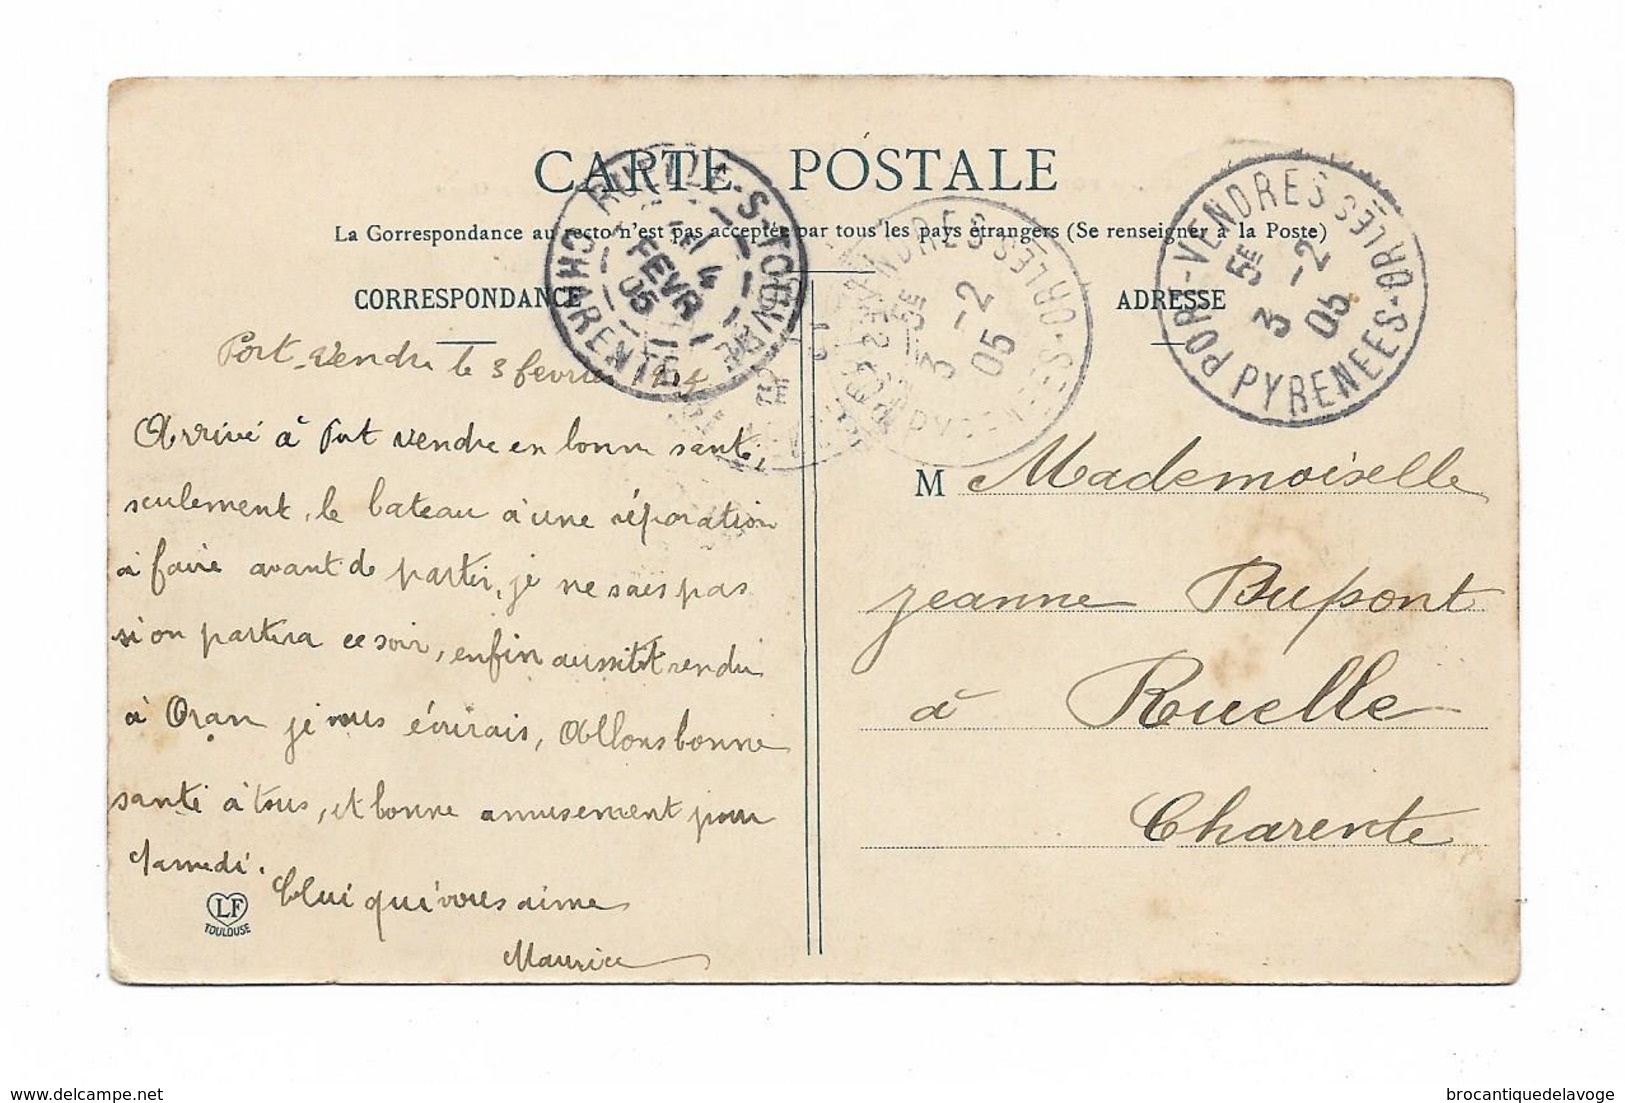 CARTE POSTALE
La Correspondance au recto n'est pas acceptée par tous les pays étrangers (Se renseigner à la Poste)
RUELLE-S-TOUVRE
4
FEVR
05
CHARENTE
PORT-VENDRES
5E
3 -2
05
PYRENEES-ORLES
PORT-VENDRES
5E
3 -2
05
PYRENEES-ORLES
CORRESPONDANCE
Port-Vendre le 3 fevrier
Arrivé à Port Vendre en bonne santé,
seulement, le bateau à une réparation
à faire avant de partir, je ne sais pas
si on partira ce soir, enfin aussitôt rendu
à Oran je vous écrirais, Allons bonne
santé à tous, et bonne amusement pour
Samedi.
Celui qui vous aime
Maurice
LF
TOULOUSE
ADRESSE
M Mademoiselle
Jeanne Dupont
à Ruelle
Charente
delcampe.net
brocantiquedelavoge